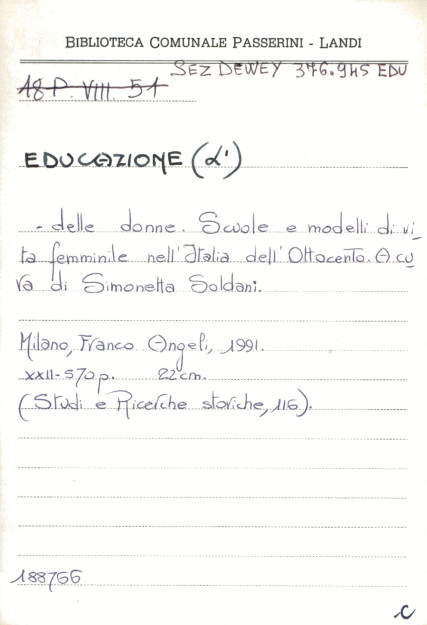 BIBLIOTECA COMUNALE PASSERINI - LANDI
SEZ DEWEY 376.945 EDU
18 P. VIII. 51
EDUCAZIONE (L')
- delle donne. Scuole e modelli di vi_
ta femminile nell'Italia dell'Ottocento. A cu_
ra di Simonetta Soldani.
Milano, Franco Angeli, 1991.
XXII-570 p. 22 cm.
(Studi e Ricerche storiche, 116).
188766
C